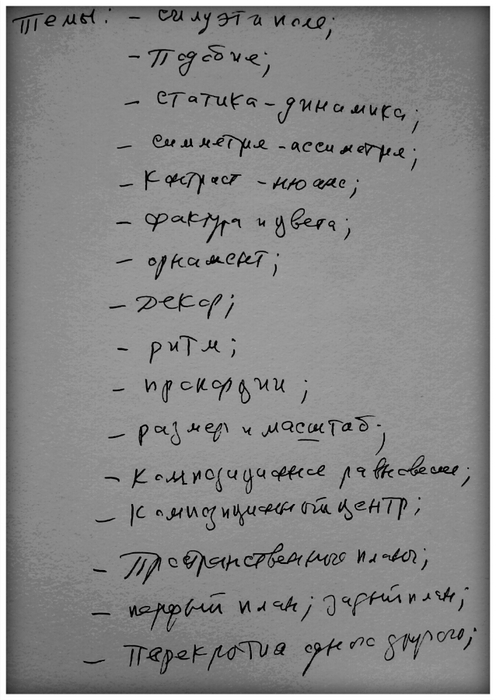 Темы: - силуэт и поле;
- Подобие;
- статика - динамика;
- симметрия - ассиметрия;
- контраст - нюанс;
- фактура и цвета;
- орнамент;
- Декор;
- ритм;
- размер и масштаб;
- Композиционное равновесие;
- Композиционный центр;
- Пространственного планы;
- первый план; задний план;
- одного другого;